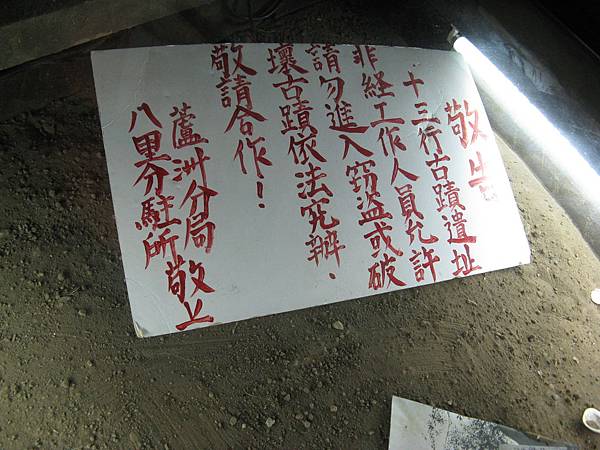 敬告
十三行古蹟遺址
非經工作人員允許
請勿進入窃盜或破
壞古蹟依法究辦.
敬請合作！
蘆洲分局
八里分駐所敬上